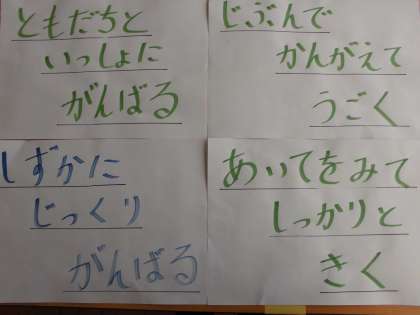 ともだちと
いっしょに
がんばる
じぶんで
かんがえて
うごく
しずかに
じっくり
がんばる
あいてをみて
しっかりと
きく